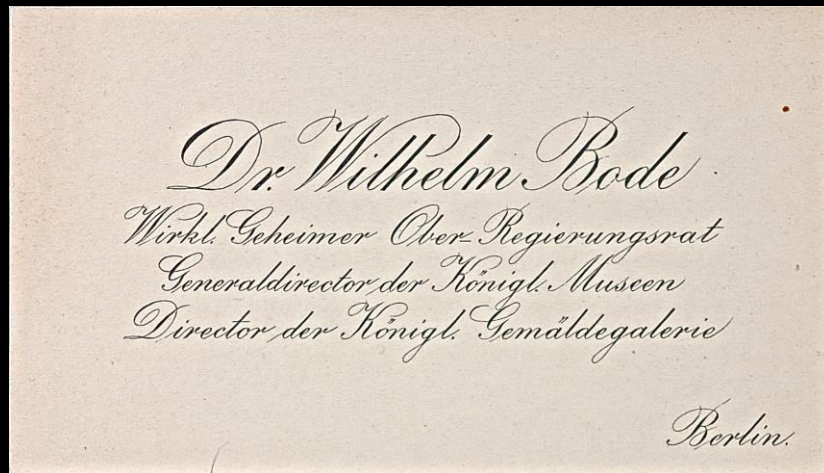 Dr. Wilhelm Bode
Wirkl. Geheimer Ober-Regierungsrat
Generaldirector der Königl. Museen
Director der Königl. Gemäldegalerie
Berlin.